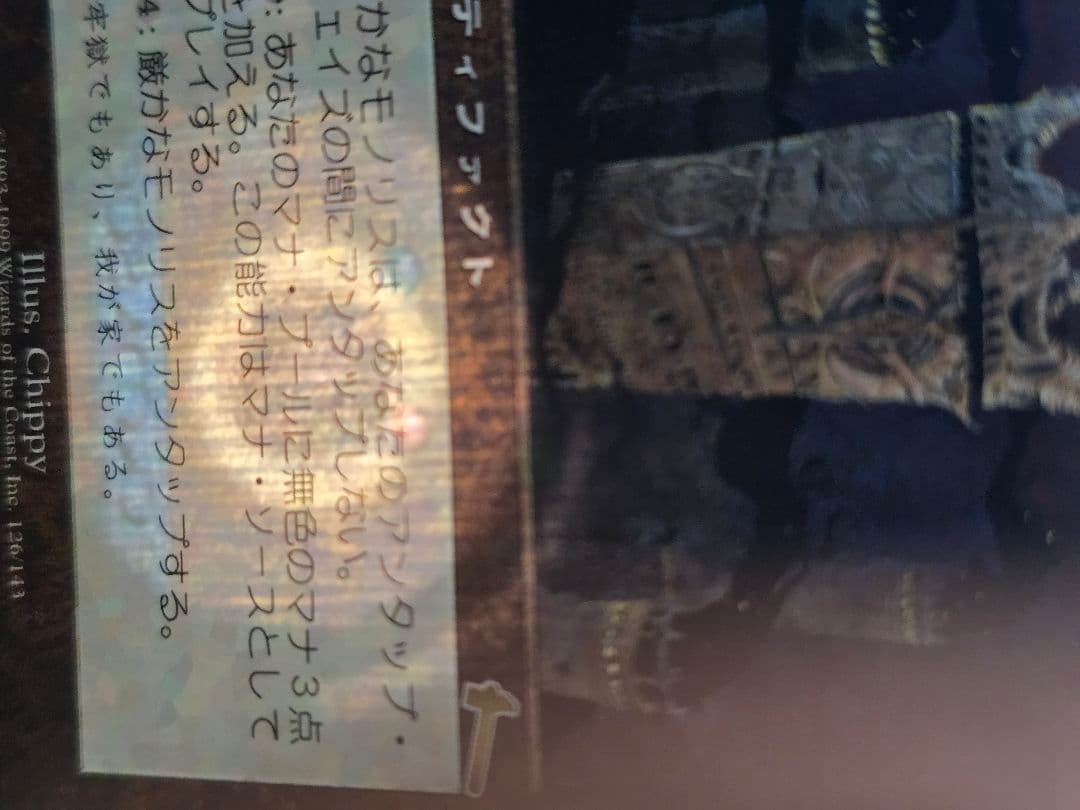 ティファクト
かなモノリスは、あなたのアンタップ・
ェイズの間にアンタップしない。
: あなたのマナ・プールに無色のマナ3点
加える。この能力はマナ・ソースとして
プレイする。
4：厳かなモノリスをアンタップする。
牢獄でもあり、我が家でもある。
Illus. Chippy
1993-1999 Wizards of the Coast, Inc. 126/143